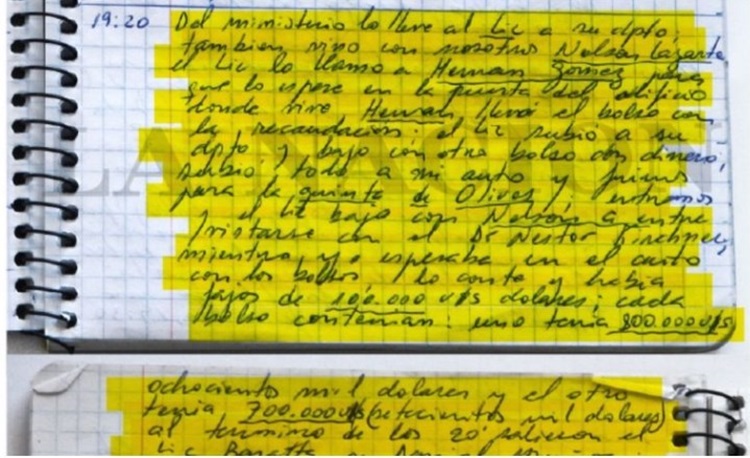 19:20 Del ministerio lo lleve al Lic a su dpto,
tambien vino con nosotros Nelson Lazarte,
el Lic lo llamo a Hernan Gomez para
que lo espere en la puerta del edificio
donde vive Hernan llevó el bolso con
la recaudacion: el Lic subio a su
dpto y bajo con otro bolso con dinero,
subio todo a mi auto y fuimos
para la quinta de Olivos, entramos
y el Lic bajo con Nelson a entre
vistarse con el Dr Nestor Kirchner,
mientras yo esperaba en el auto
con los bolsos, lo conte y habia
fajos de 100.000 u$s dolares; cada
bolso contenian: uno tenia 800.000 u$s
ochocientos mil dolares y el otro
tenia 700.000 u$s (setecientos mil dolares)
al termino de los 20' salieron el
Lic Baratta
LA NACION